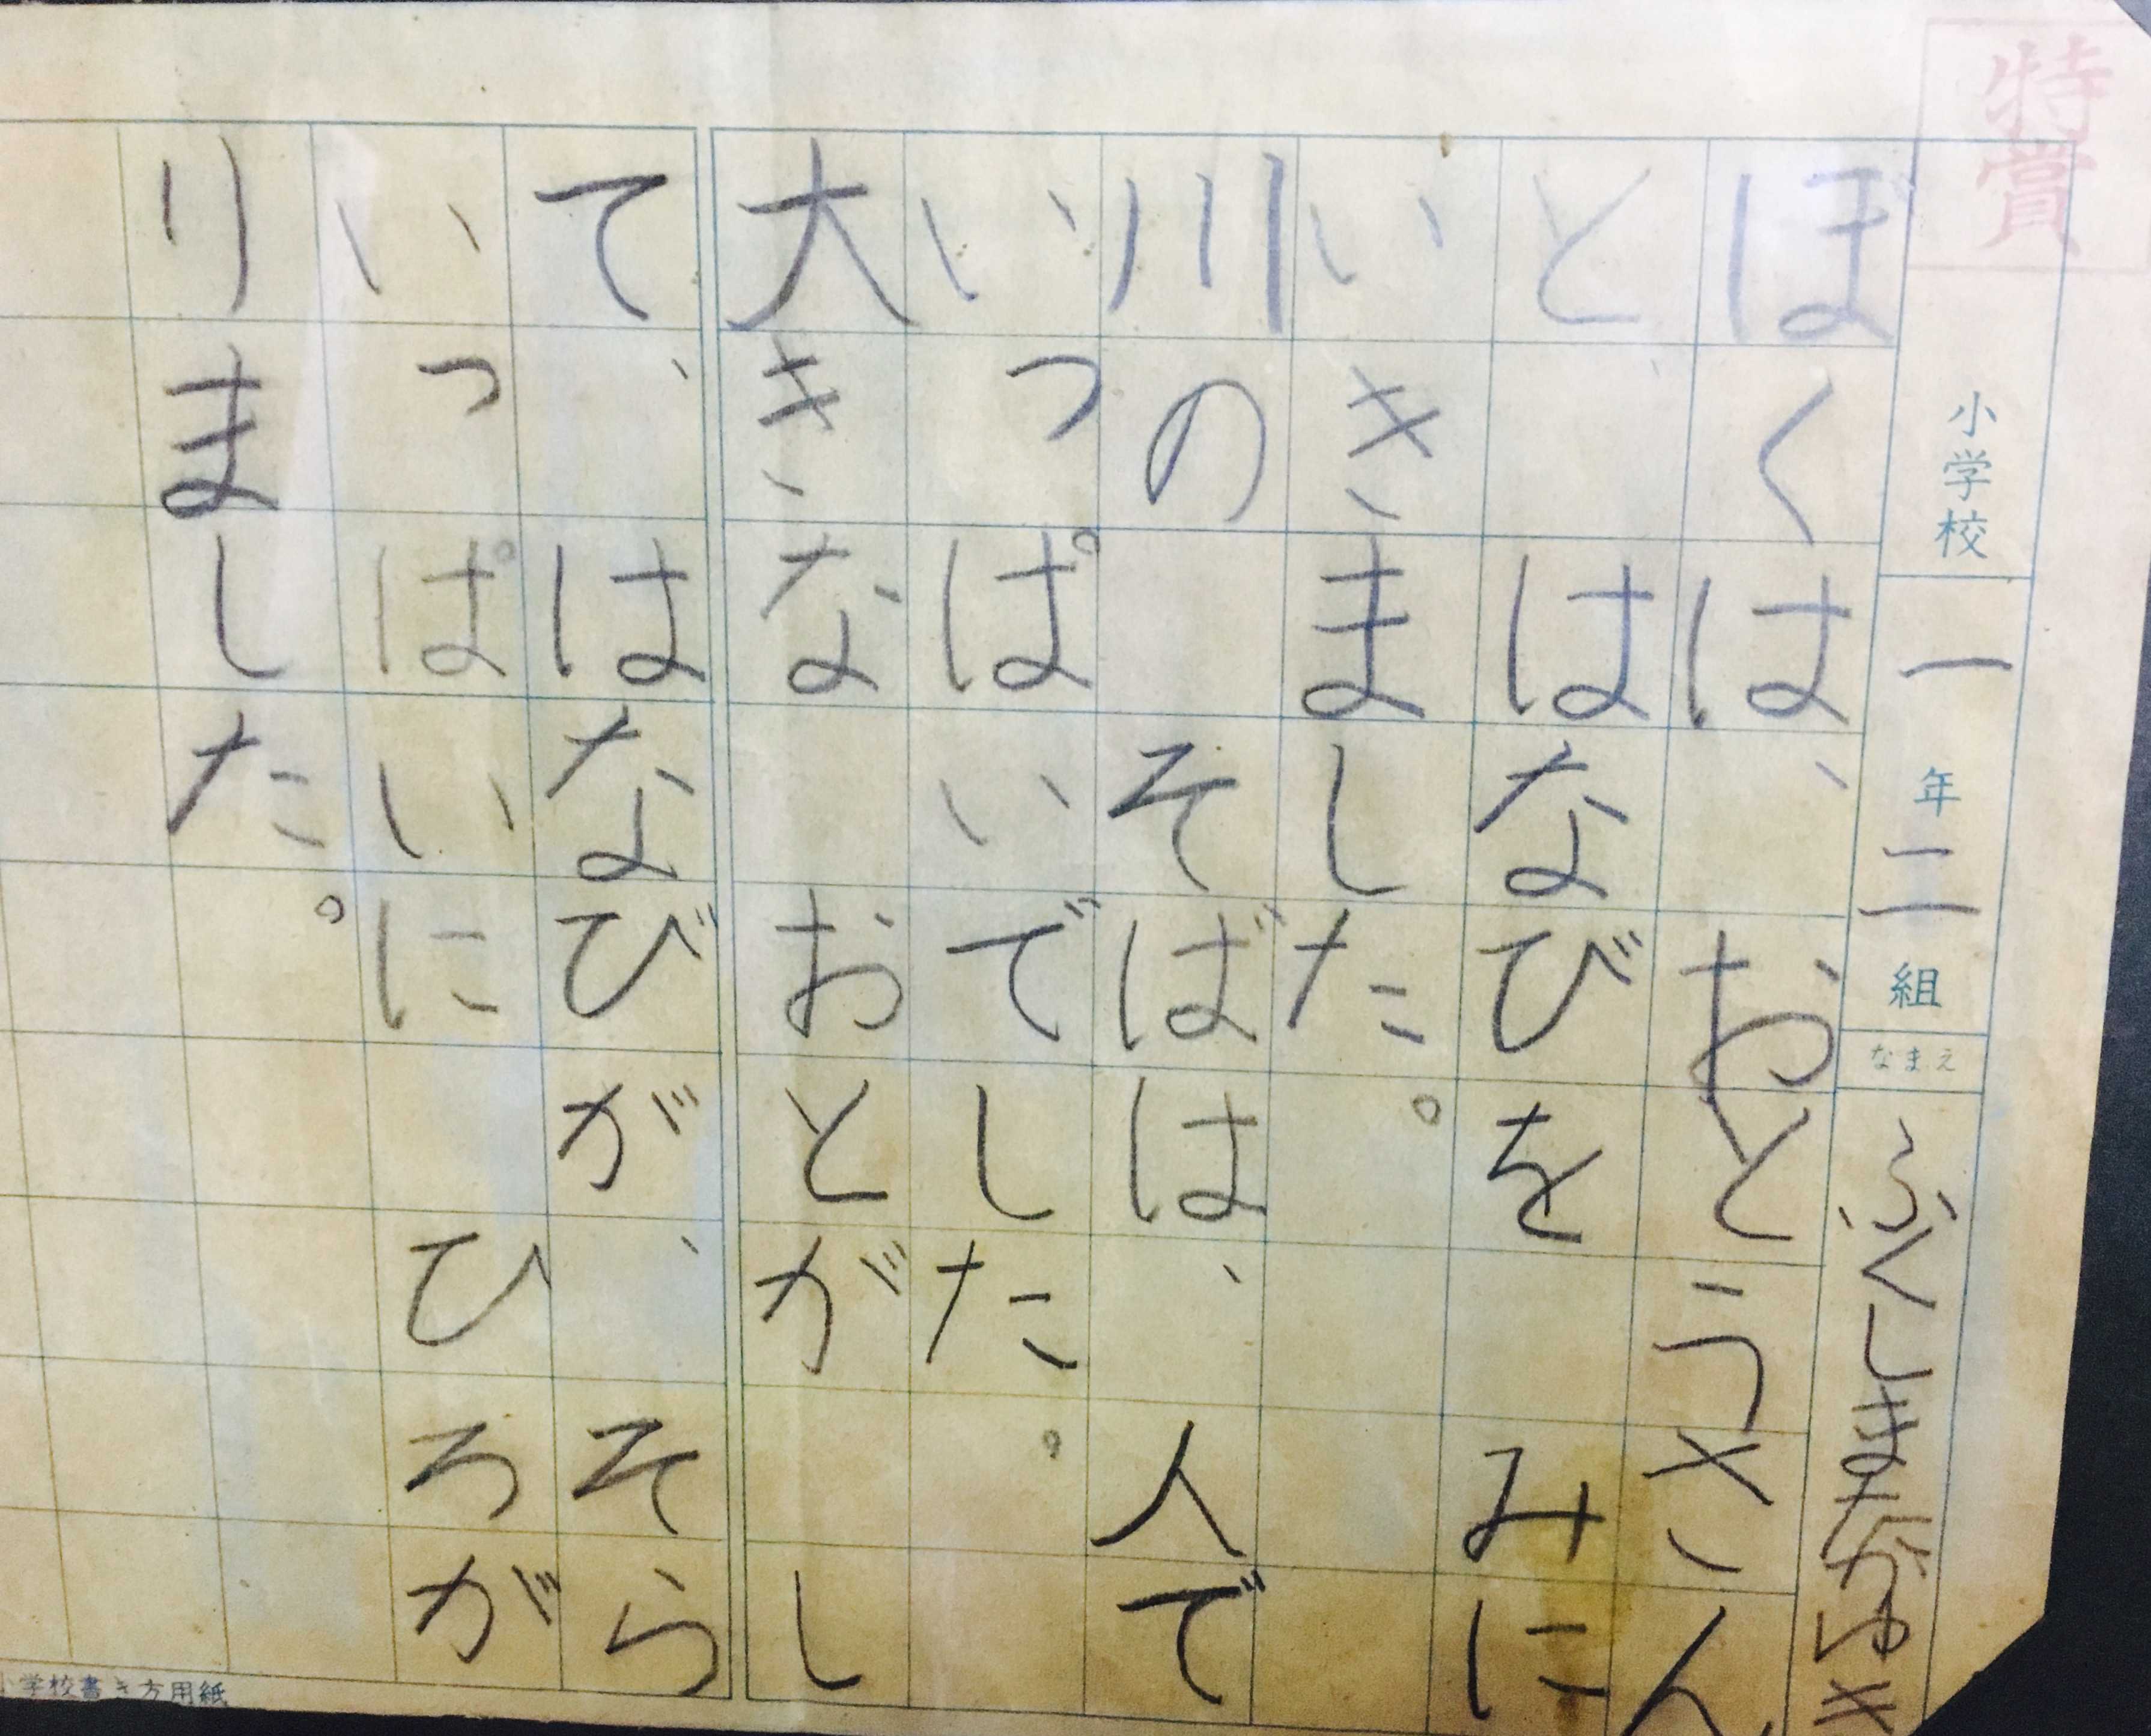 特賞
小学校 一年二組 なまえ ふくしまたかゆき
ぼくは、おとうさん
と、はなびを みに
いきました。
川の そばは、人で
いっぱいでした。
大きな おとが し
て、はなびが、そら
いっぱいに ひろが
りました。
小学校書き方用紙